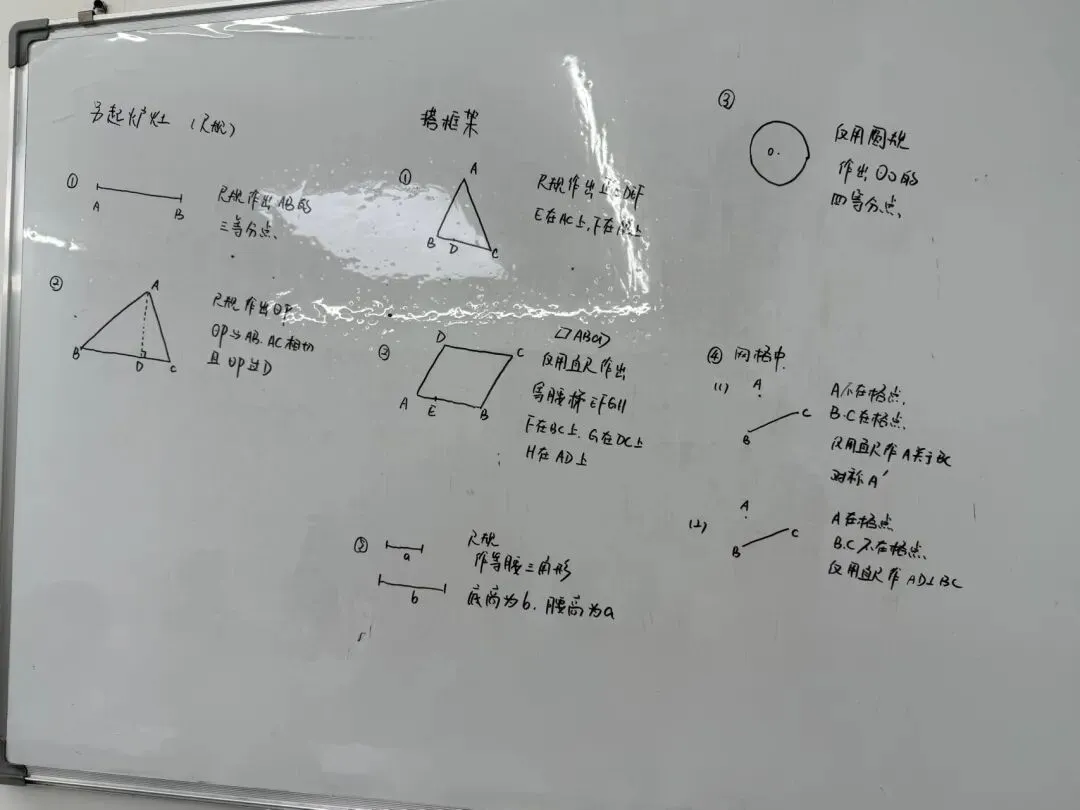 另起炉灶（尺规）
①
A
B
尺规作出AB的
三等分点.
②
A
B
D
C
尺规作出⊙P
⊙P与AB.AC相切
且⊙P过D
搭框架
①
A
B
D
C
尺规作出正△DEF
E在AC上,F在 上
③
D
C
A
E
B
▱ABCD
仅用直尺作出
等腰梯EFGH
F在BC上.G在DC上
H在AD上
②
a
b
尺规
作等腰三角形
底高为b.腰高为a
③
O.
仅用圆规
作出⊙O的
四等分点.
④ 网格中.
(1)
A
B
C
A不在格点.
B.C在格点.
仅用直尺作A关于BC
对称A'
(2)
A
B
C
A在格点
B.C不在格点.
仅用直尺作AD⊥BC